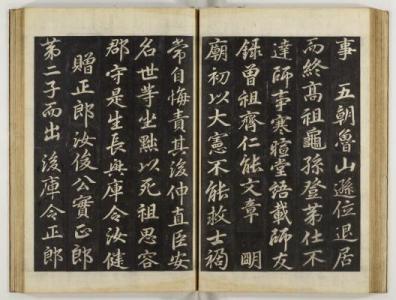 事 五朝魯山遜位退居
而終高祖龜孫登第仕不
達師事寒暄堂語載師友
錄曾祖齊仁能文章 明
廟初以大憲不能救士禍
常自悔責其後仲直臣安
名世等坐黜以死祖思容
郡守是生長興庫令汝健
贈正郎汝俊公實正郎
第二子而出後庫令正郎